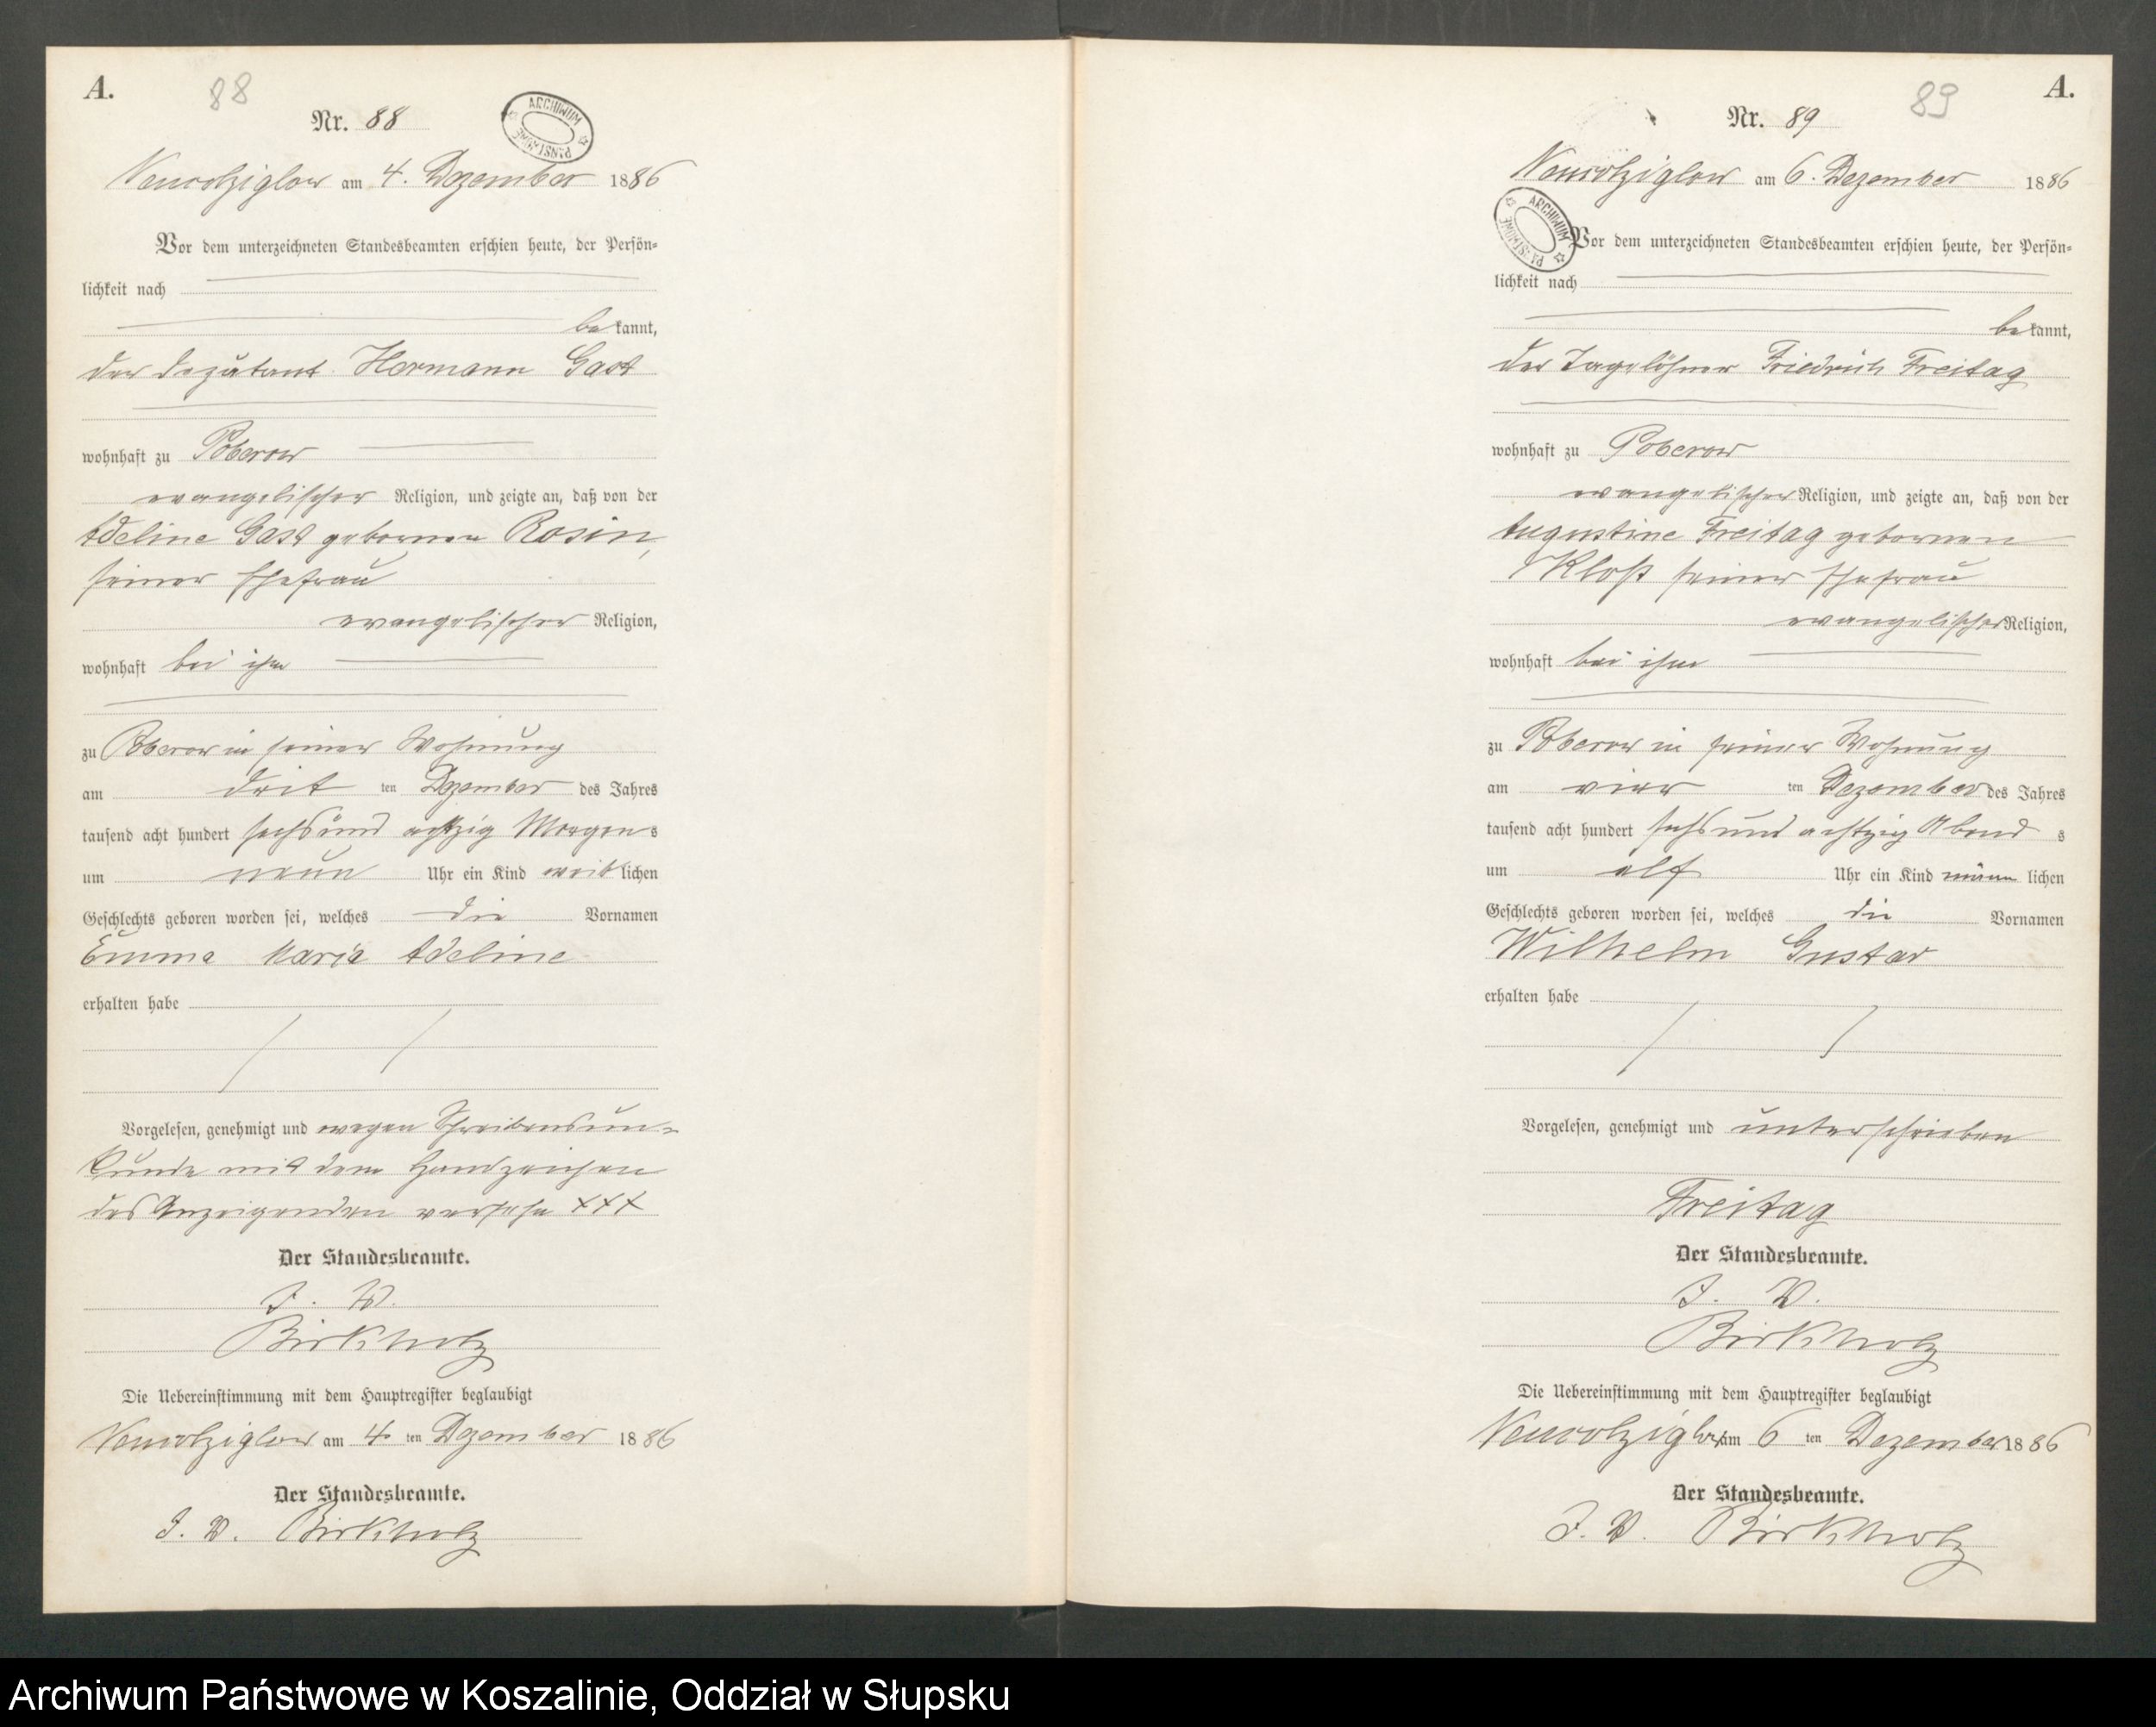 A.
88
Nr. 88
ARCHIWUM PAŃSTWOWE
Neuwolziglow am 4. Dezember 1886
Vor dem unterzeichneten Standesbeamten erschien heute, der Persön-
lichkeit nach
bekannt,
der Deputant Hermann Gast
wohnhaft zu Poberow
evangelischer Religion, und zeigte an, daß von der
Adeline Gast gebornen Rosin,
seiner Ehefrau
evangelischer Religion,
wohnhaft bei ihm
zu Poberow in seiner Wohnung
am dritten Dezember des Jahres
tausend acht hundert sechsund achtzig Morgens
um neun Uhr ein Kind weiblichen
Geschlechts geboren worden sei, welches die Vornamen
Emma Maria Adeline
erhalten habe
Vorgelesen, genehmigt und wegen Schreibensun-
kunde mit dem Handzeichen
des Anzeigenden versehn +++
Der Standesbeamte.
J. V.
Birkholz
Die Uebereinstimmung mit dem Hauptregister beglaubigt
Neuwolziglow am 4. ten Dezember 1886
Der Standesbeamte.
J. V. Birkholz
A.
89
Nr. 89
Neuwolziglow am 6. Dezember 1886
ARCHIWUM PAŃSTWOWE
Vor dem unterzeichneten Standesbeamten erschien heute, der Persön-
lichkeit nach
bekannt,
der Tagelöhner Friedrich Freitag
wohnhaft zu Poberow
evangelischer Religion, und zeigte an, daß von der
Augustine Freitag gebornen
Kloß seiner Ehefrau
evangelischer Religion,
wohnhaft bei ihm
zu Poberow in seiner Wohnung
am vier ten Dezember des Jahres
tausend acht hundert sechsund achtzig Abend s
um elf Uhr ein Kind männ lichen
Geschlechts geboren worden sei, welches die Vornamen
Wilhelm Gustav
erhalten habe
Vorgelesen, genehmigt und unterschrieben
Freitag
Der Standesbeamte.
J. V.
Birkholz
Die Uebereinstimmung mit dem Hauptregister beglaubigt
Neuwolziglow am 6 ten Dezember 1886
Der Standesbeamte.
J. V. Birkholz
Archiwum Państwowe w Koszalinie, Oddział w Słupsku